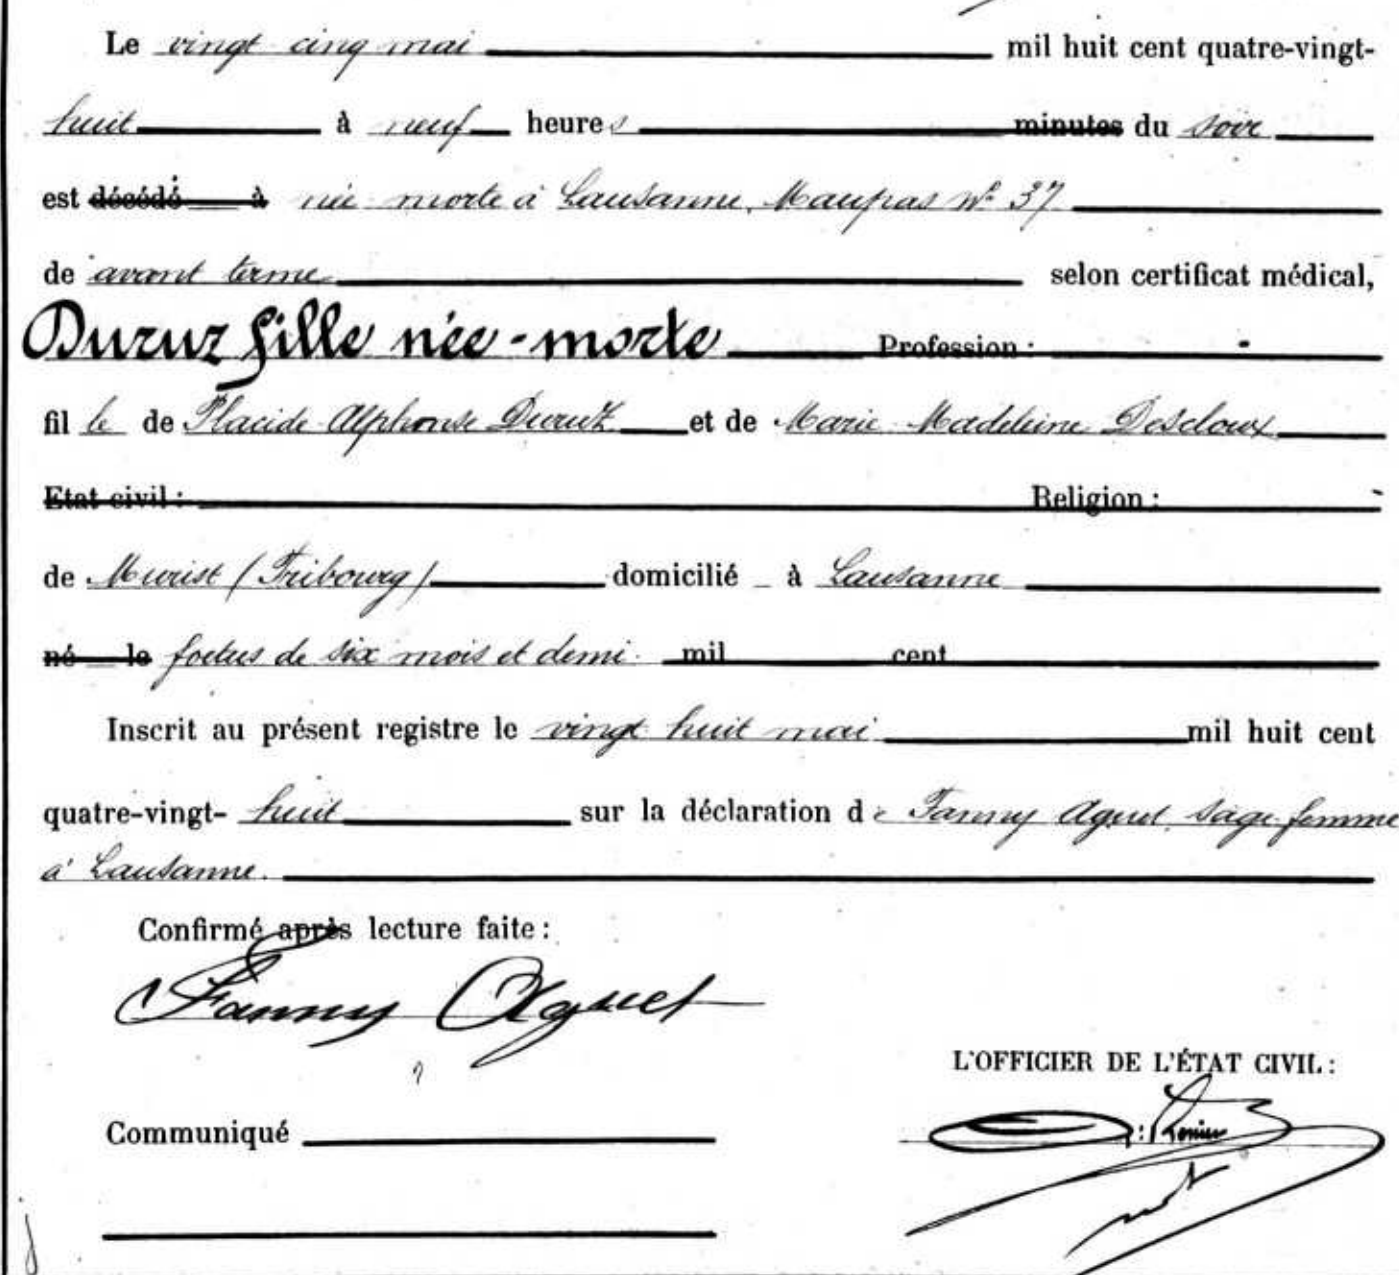 Le vingt cinq mai mil huit cent quatre-vingt-
huit à neuf heures minutes du soir
est décédé à née morte à Lausanne, Maupas Nº 37
de avant terme selon certificat médical,
Duruz fille née-morte Profession :
fil le de Placide Alphonse Duruz et de Marie Madeleine Descloux
Etat civil : Religion :
de Murist (Fribourg) domicilié à Lausanne
né le foetus de six mois et demi mil cent
Inscrit au présent registre le vingt huit mai mil huit cent
quatre-vingt- huit sur la déclaration de Fanny Aguet, sage-femme
à Lausanne.
Confirmé après lecture faite :
Fanny Aguet
L'OFFICIER DE L'ÉTAT CIVIL :
Communiqué